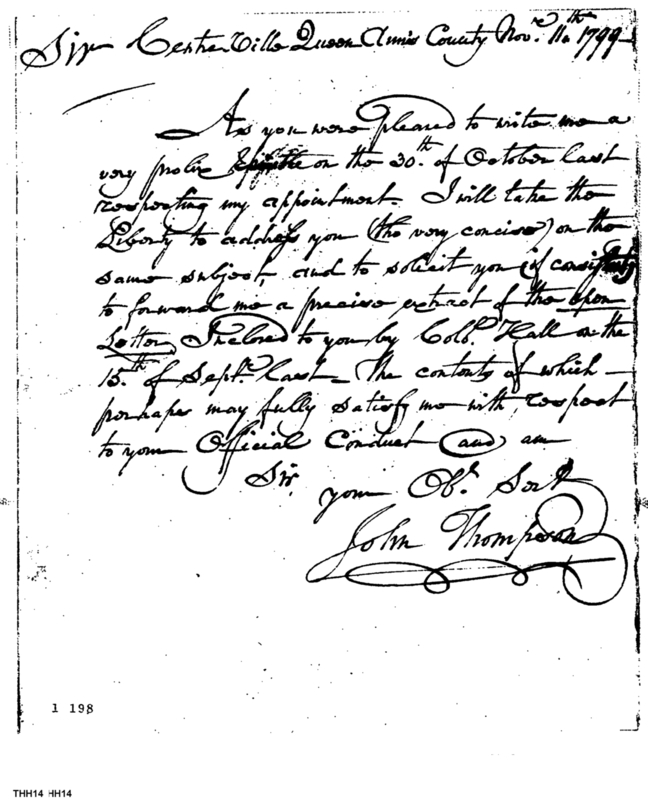 Sir Centre Ville Queen Ann's County Novr. 11th 1799
As you were pleased to write me a
very prolix Epistle on the 30th. of October last
respecting my appointment. I will take the
Liberty to address you (tho very concise) on the
same subject, and to solicit you if consistent
to forward me a precise extract of the open
Letter, Inclosed to you by Colo. Hall on the
15th of Septr. last. The contents of which
perhaps may fully satisfy me with respect
to your Official Conduct and am
Sir,
your Obt. Servt
John Thompson
1 198
THH14 HH14